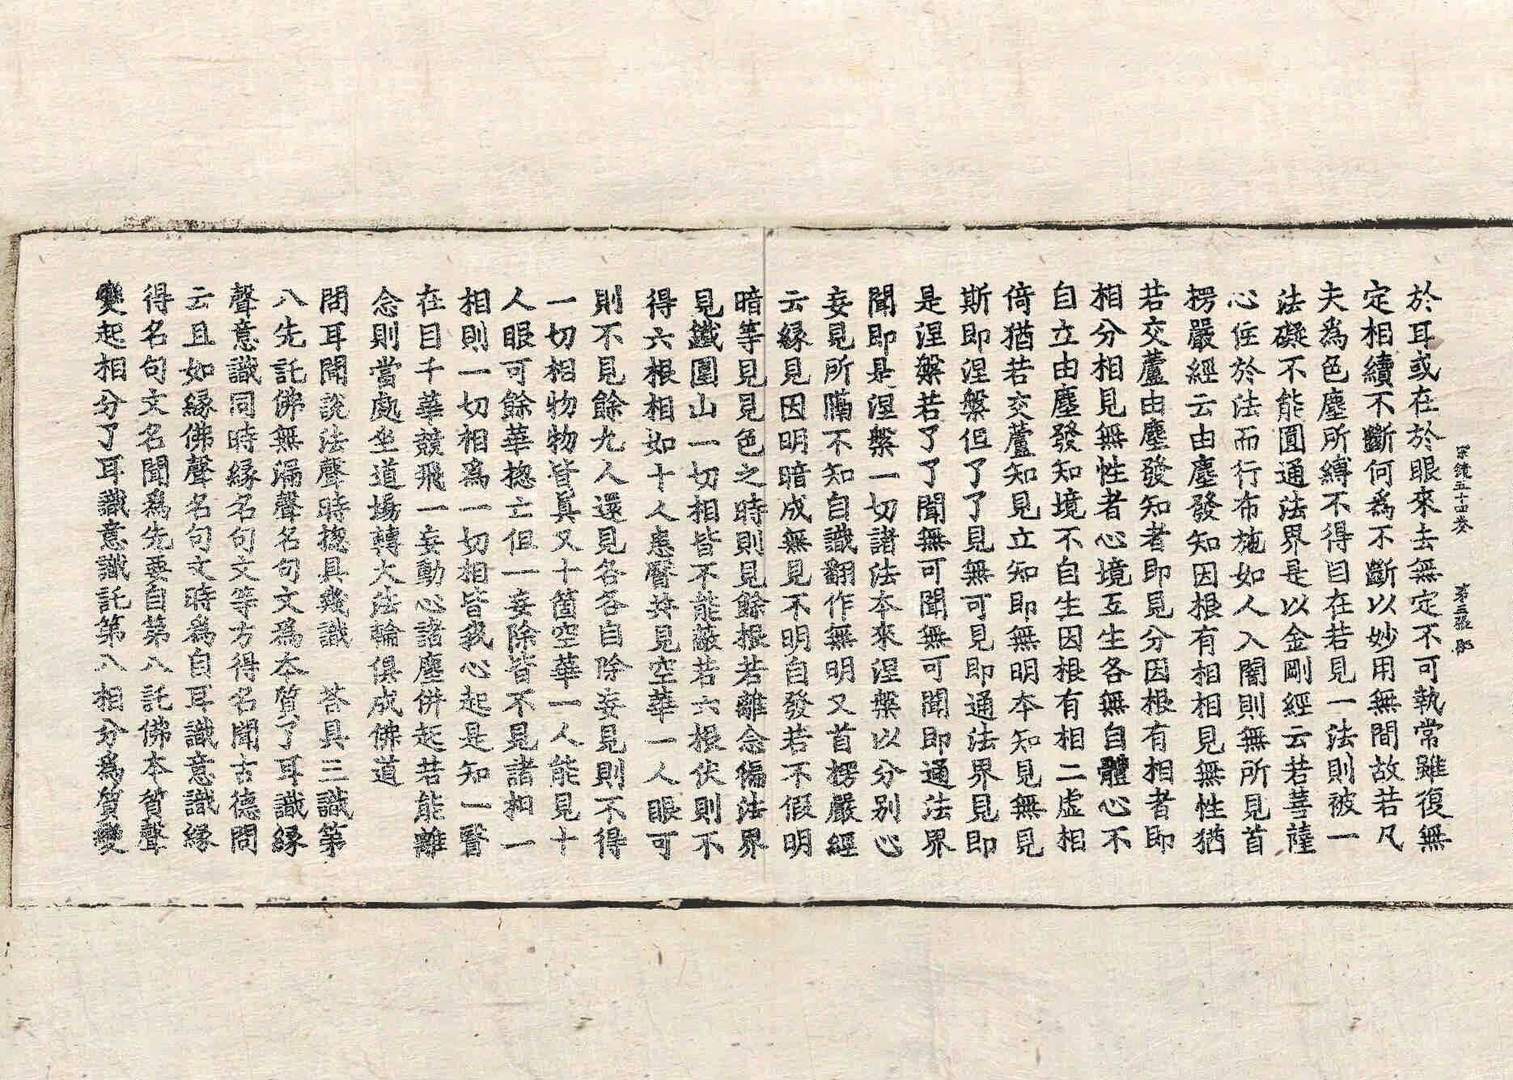 宗鏡五十四卷 第三張
於耳或在於眼來去無定不可執常雖復無
定相續不斷何爲不斷以妙用無間故若凡
夫爲色塵所縛不得自在若見一法則被一
法礙不能圓通法界是以金剛經云若菩薩
心住於法而行布施如人入闇則無所見首
楞嚴經云由塵發知因根有相相見無性猶
若交蘆由塵發知者即見分因根有相者即
相分相見無性者心境互生各無自體心不
自立由塵發知境不自生因根有相二虛相
倚猶若交蘆知見立知即無明本知見無見
斯即涅槃但了了見無可見即通法界見即
是涅槃若了了聞無可聞無可聞即通法界
聞即是涅槃一切諸法本來涅槃以分別心
妄見所隔不知自識翻作無明又首楞嚴經
云緣見因明暗成無見不明自發若不假明
暗等見見色之時則見餘根若離念徧法界
見鐵圍山一切相皆不能蔽若六根伏則不
得六根相如十人患瞖共見空華一人眼可
則不見餘九人還見各各自除妄見則不得
一切相物物皆眞又十箇空華一人能見十
人眼可餘華揔亡但一妄除皆不見諸相一
相則一切相爲一切相皆我心起是知一瞖
在目千華競飛一妄動心諸塵併起若能離
念則當處坐道場轉大法輪俱成佛道
問耳聞說法聲時揔具幾識 荅具三識第
八先託佛無漏聲名句文爲本質了耳識緣
聲意識同時緣名句文等方得名聞古德問
云且如緣佛聲名句文時爲自耳識意識緣
得名句文名聞爲先要自第八託佛本質聲
變起相分了耳識意識託第八相分爲質變